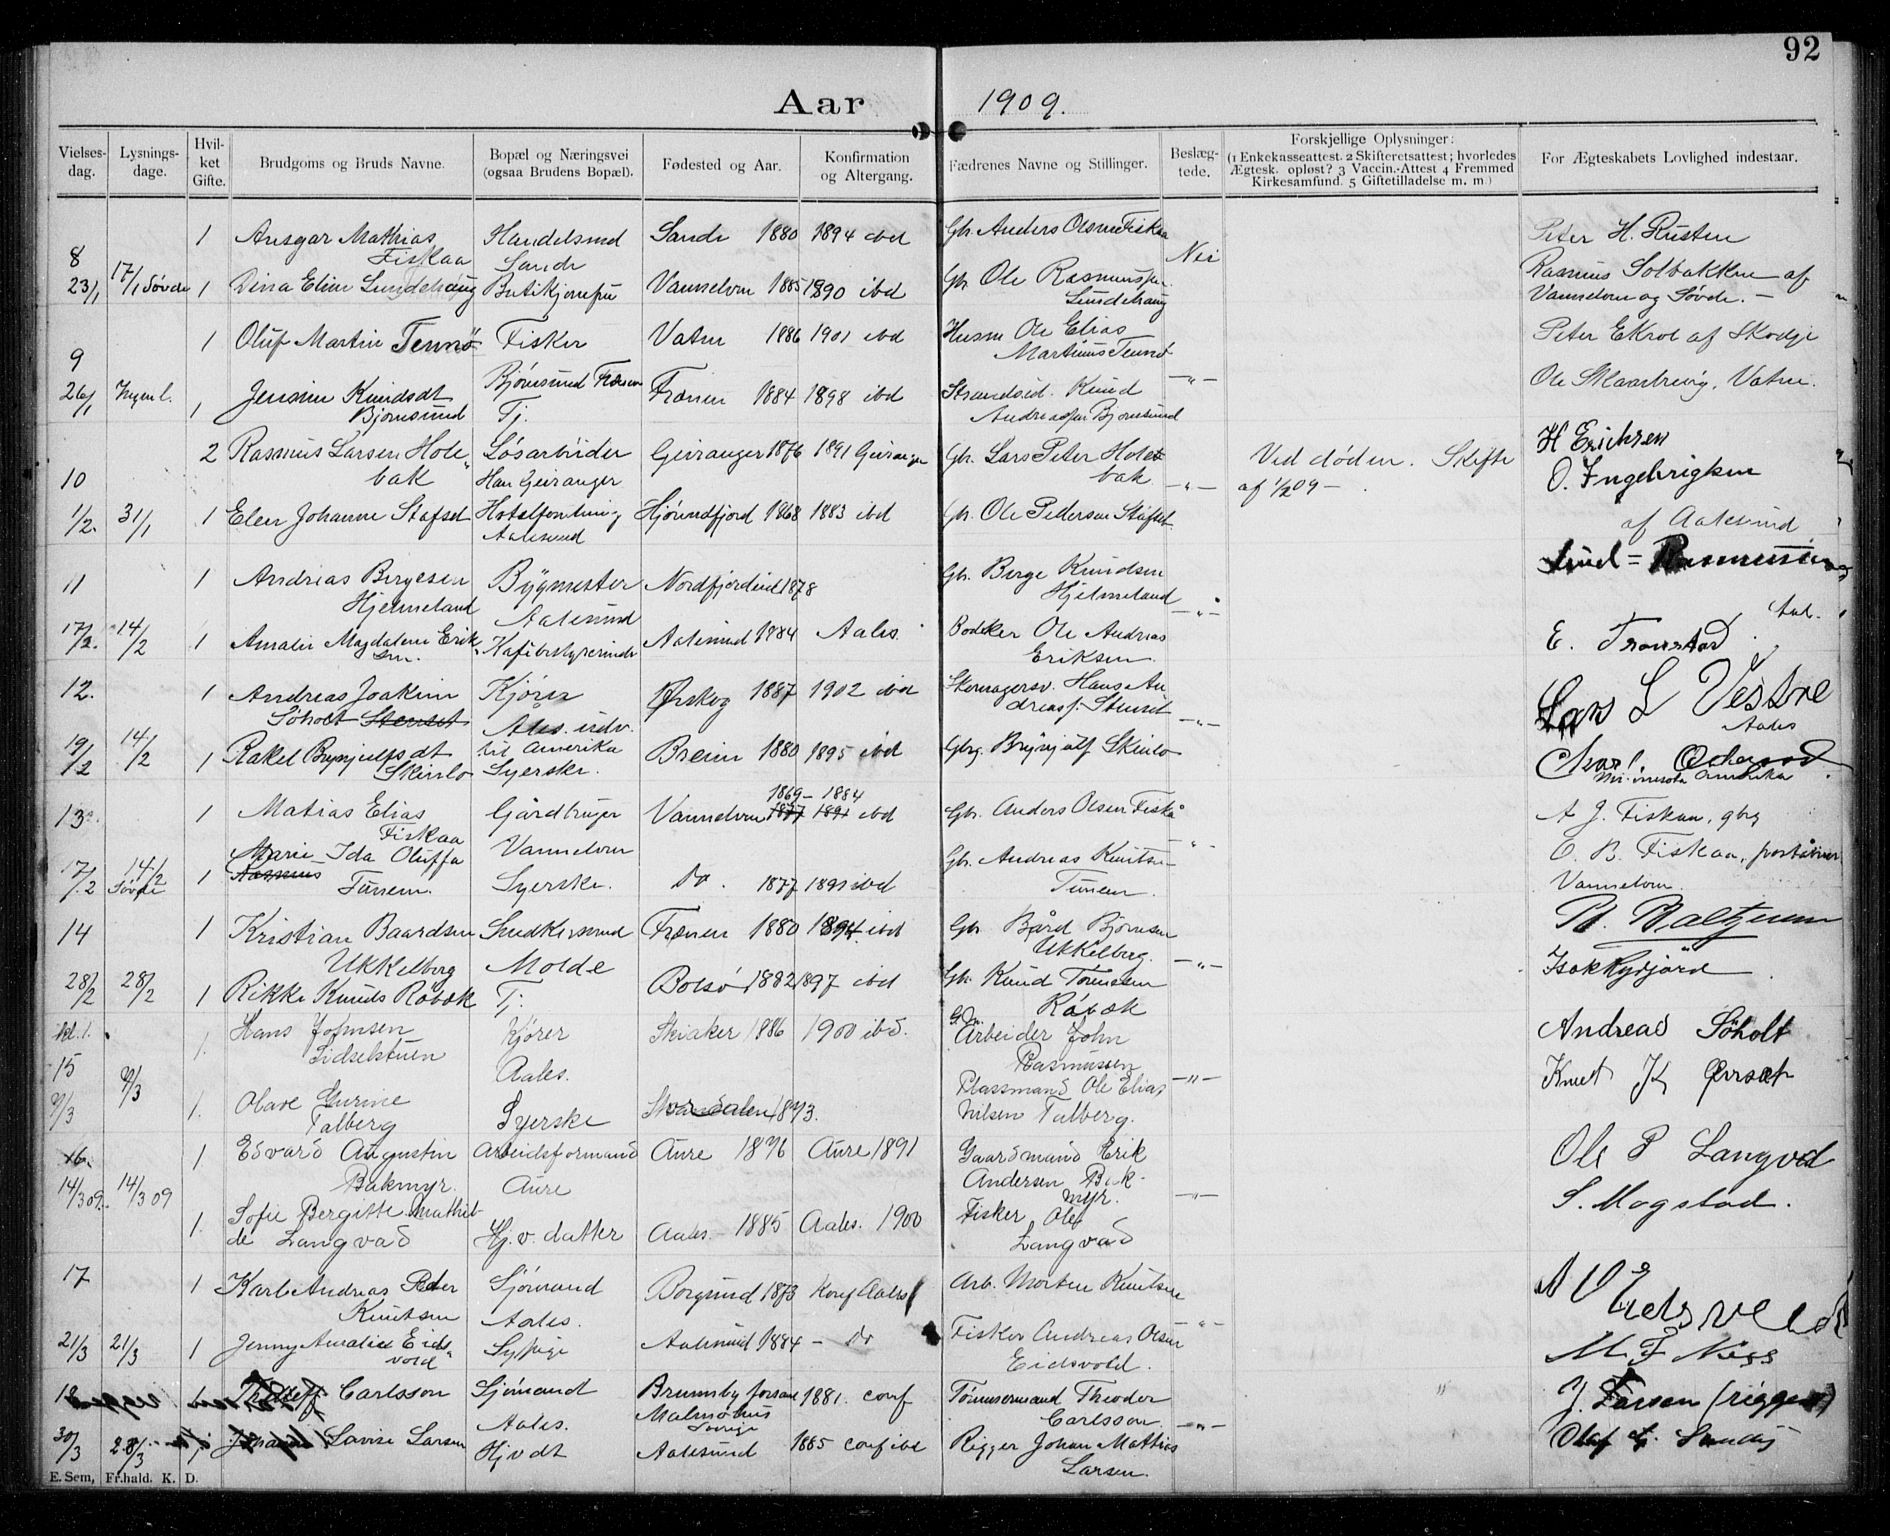 92
Aar 1909.
Vielsesdag. Lysningsdage. Hvilket Gifte. Brudgoms og Bruds Navne. Bopæl og Næringsvei (ogsaa Brudens Bopæl). Fødested og Aar. Konfirmation og Altergang. Fædrenes Navne og Stillinger. Beslægtede. Forskjellige Oplysninger: (1 Enkekasseattest. 2 Skifteretsattest; hvorledes Ægtesk. opløst? 3 Vaccin.-Attest 4 Fremmed Kirkesamfund. 5 Giftetilladelse m. m.) For Ægteskabets Lovlighed indestaar.
8 1 Ansgar Mathias Fiskaa Handelsmd Sande Sande 1880 1894 ibd Gbr. Anders Olsen Fiskaa Nei Peter H. Rusten
23/1 17/1 Søvde 1 Dina Eline Lundehaug Butikjomfru Vannelven 1885 1890 ibd Gbr. Ole Rasmussen Lundehaug Rasmus Solbakken af Vannelven og Søvde. —
9 1 Oluf Martin Tennø Fisker Vatne 1886 1901 ibd Husm Ole Elias Martinus Tennø Peter Ekroe af Skodje
26/1 Ingen l. 1 Jensine Knudsdt Bjørnsund Bjørnsund Frænen Tj. Frænen 1884 1898 ibd Strandsid. Knud Andreassen Bjørnsund —"— Ole Skaarbrevig, Vatne.
10 2 Rasmus Larsen Holebak Løsarbeider Han Geiranger Geiranger 1876 1891 Geiranger Gbr. Lars Peter Holebak —"— Ved døden. Skifte af 1/2 09 — H Erichsen O. Ingebrigtsen
1/2. 31/1 1 Elen Johanne Stafset Hotelforretning Aalesund Hjørundfjord 1868 1883 ibd Gbr. Ole Pedersen Stafset af Aalesund
11 1 Andreas Bergesen Hjelmeland Bygmester Aalesund Nordfjordeid 1878 Gbr. Berge Knudsen Hjelmeland —"— Rasmussen
17/2. 14/2 1 Amalie Magdalene Eriksen. Kafebestyrerinde Aalesund 1884 Aales. Bødker Ole Andreas Eriksen. E. Tronstad. Aal.
12. 1 Andreas Joakim Søholt Stenset Kjører Aales. udv. Ørskog 1887 1902 ibd Skomagersv. Hans Andreas f. Stenset —"— Lars L Vestre Aales
19/2 14/2 1 Rakel Brynjulfsdt Skinlo til Amerika Syerske. Breim 1880 1895 ibd Gbrg. Brynjulf Skinlo Minnesota Amerika.
13. 1 Matias Elias Fiskaa Gårdbruger Vannelven Vannelven 1869 – 1884 1877 1891 ibd Gbr. Anders Olsen Fiskå —"— A J. Fiskaa, gbrg
17/2 14/2 Søvde 1 Marie Ida Oluffa Rasmus Tunem. Syerske. do. 1877 1891 ibd Gbr. Andreas Knutsen Tunem. O. B. Fiskaa, postaabner Vannelven.
14 1 Kristian Baardsen Ukkelberg Smedkermand Molde Frænen 1880 1894. ibd Gbr. Bård Bjørnsen Ukkelberg. —"—
28/2 28/2 1 Rikke Knuds Røbæk Tj. Bolsø 1882 1897 ibd Gbr. Knud Tørressen Røbæk
kl. 1. 15 1. Hans Johnsen Lidselstuen Kjører Aales. Skiaker 1886 1900 ibd. Arbeider John Rasmussen —"— Andreas Søholt
9/3 9/3 1. Olave Gurine Talberg Syerske 1873. Plassmand Ole Elias Nilsen Talberg. Knut K Ørsæt
16. 1 Edvard Augustin Bakmyr. Arbeidsformand Aure Aure 1876 Aure 1891 Gaardmand Erik Andersen Bakmyr. —"— Ole P Langvad
14/3 09. 14/3 09 1. Sofie Bergitte Mathilde Langvad Hj. v. datter Aales. 1885 Aales. 1900 Fisker Ole Langvad S. Magstad.
17 1 Karl Andreas Peder Knutsen Sjømand Aales. Borgund 1873 Konf Aales Arb. Morten Knutsen —"— A O Eidsvold
21/3 21/3 1 Jenny Amalie Eidsvold Sypige Aalesund 1884 – do Fisker Andreas Olsen Eidsvold. M. F Ness
18 1 Carlsson Sjømand Aales. Brumsby forsaml Malmøhus Sverige 1881. conf Tømmermand Theodor Carlsson. —"— J. Larsen (rigger)
30/3 28/3 1 Johanne Lovise Larsen Hjvdt Aalesund 1885 conf ibd Rigger Johan Mathias Larsen. Olaf
E. Sem, Fr.hald. K. D.